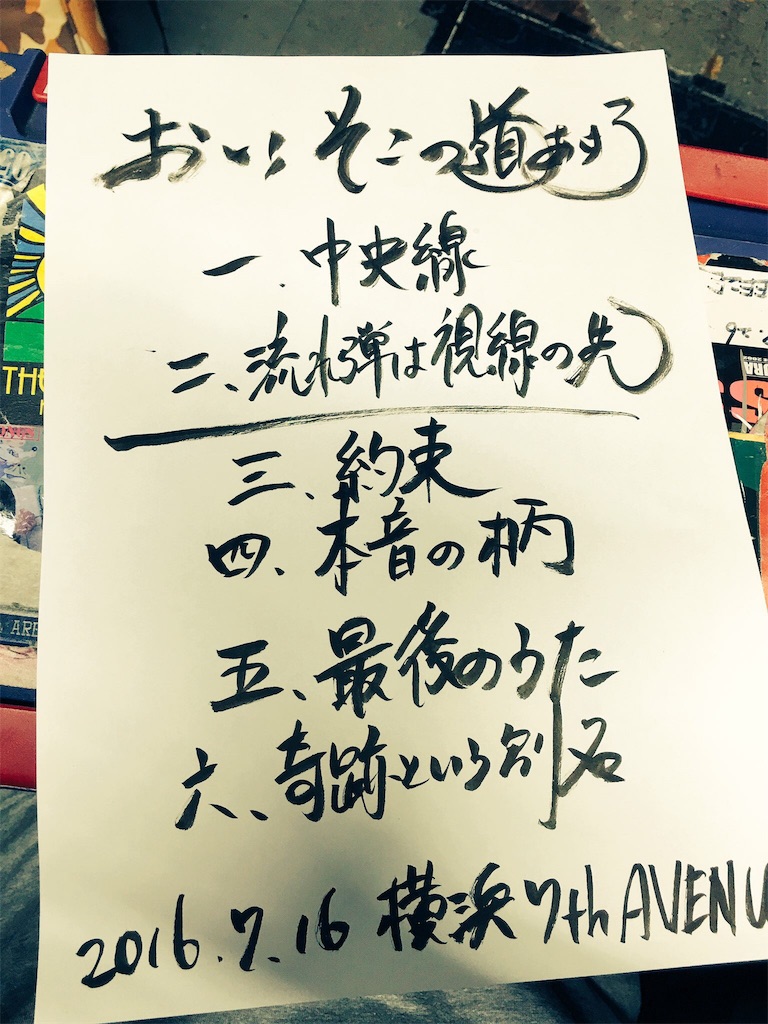 おい、そこの道あけろ
一、中央線
二、流れ弾は視線の先
三、約束
四、本音の柄
五、最後のうた
六、奇跡という別名
2016.7.16 横浜 7th AVENU
TH
ARE